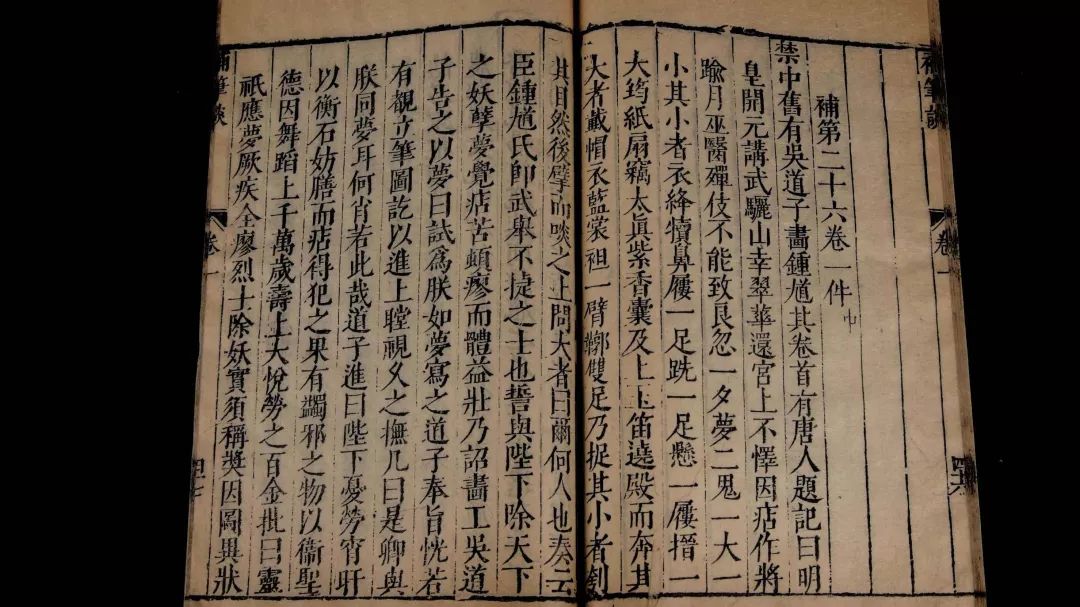 補筆談
卷一
補第二十六卷一件
禁中舊有吳道子畫鍾馗其卷首有唐人題記曰明
皇開元講武驪山幸翠華還宮上不懌因痁作將
踰月巫醫殫伎不能致良忽一夕夢二鬼一大一
小其小者絳犢鼻屨一足跣一足懸一屨搢一
大筠紙扇竊太眞紫香囊及上玉笛遶殿而奔其
大者戴帽衣藍裳袒一臂鞹雙足乃捉其小者刳
其目然後擘而啖之上問大者曰爾何人也奏云
臣鍾馗氏卽武舉不捷之士也誓與陛下除天下
之妖孽夢覺痁苦頓瘳而體益壯乃詔畫工吳道
子告之以夢曰試爲朕如夢寫之道子奉旨恍若
有覩立筆圖訖以進上瞠視久之撫几曰是卿與
朕同夢耳何肖若此哉道子進曰陛下憂勞宵旰
以衡石妨膳而痁得犯之果有蠲邪之物以衞聖
德因舞蹈上千萬歲壽上大悅勞之百金批曰靈
祇應夢厥疾全瘳烈士除妖實須稱獎因圖異狀
補筆談
卷一